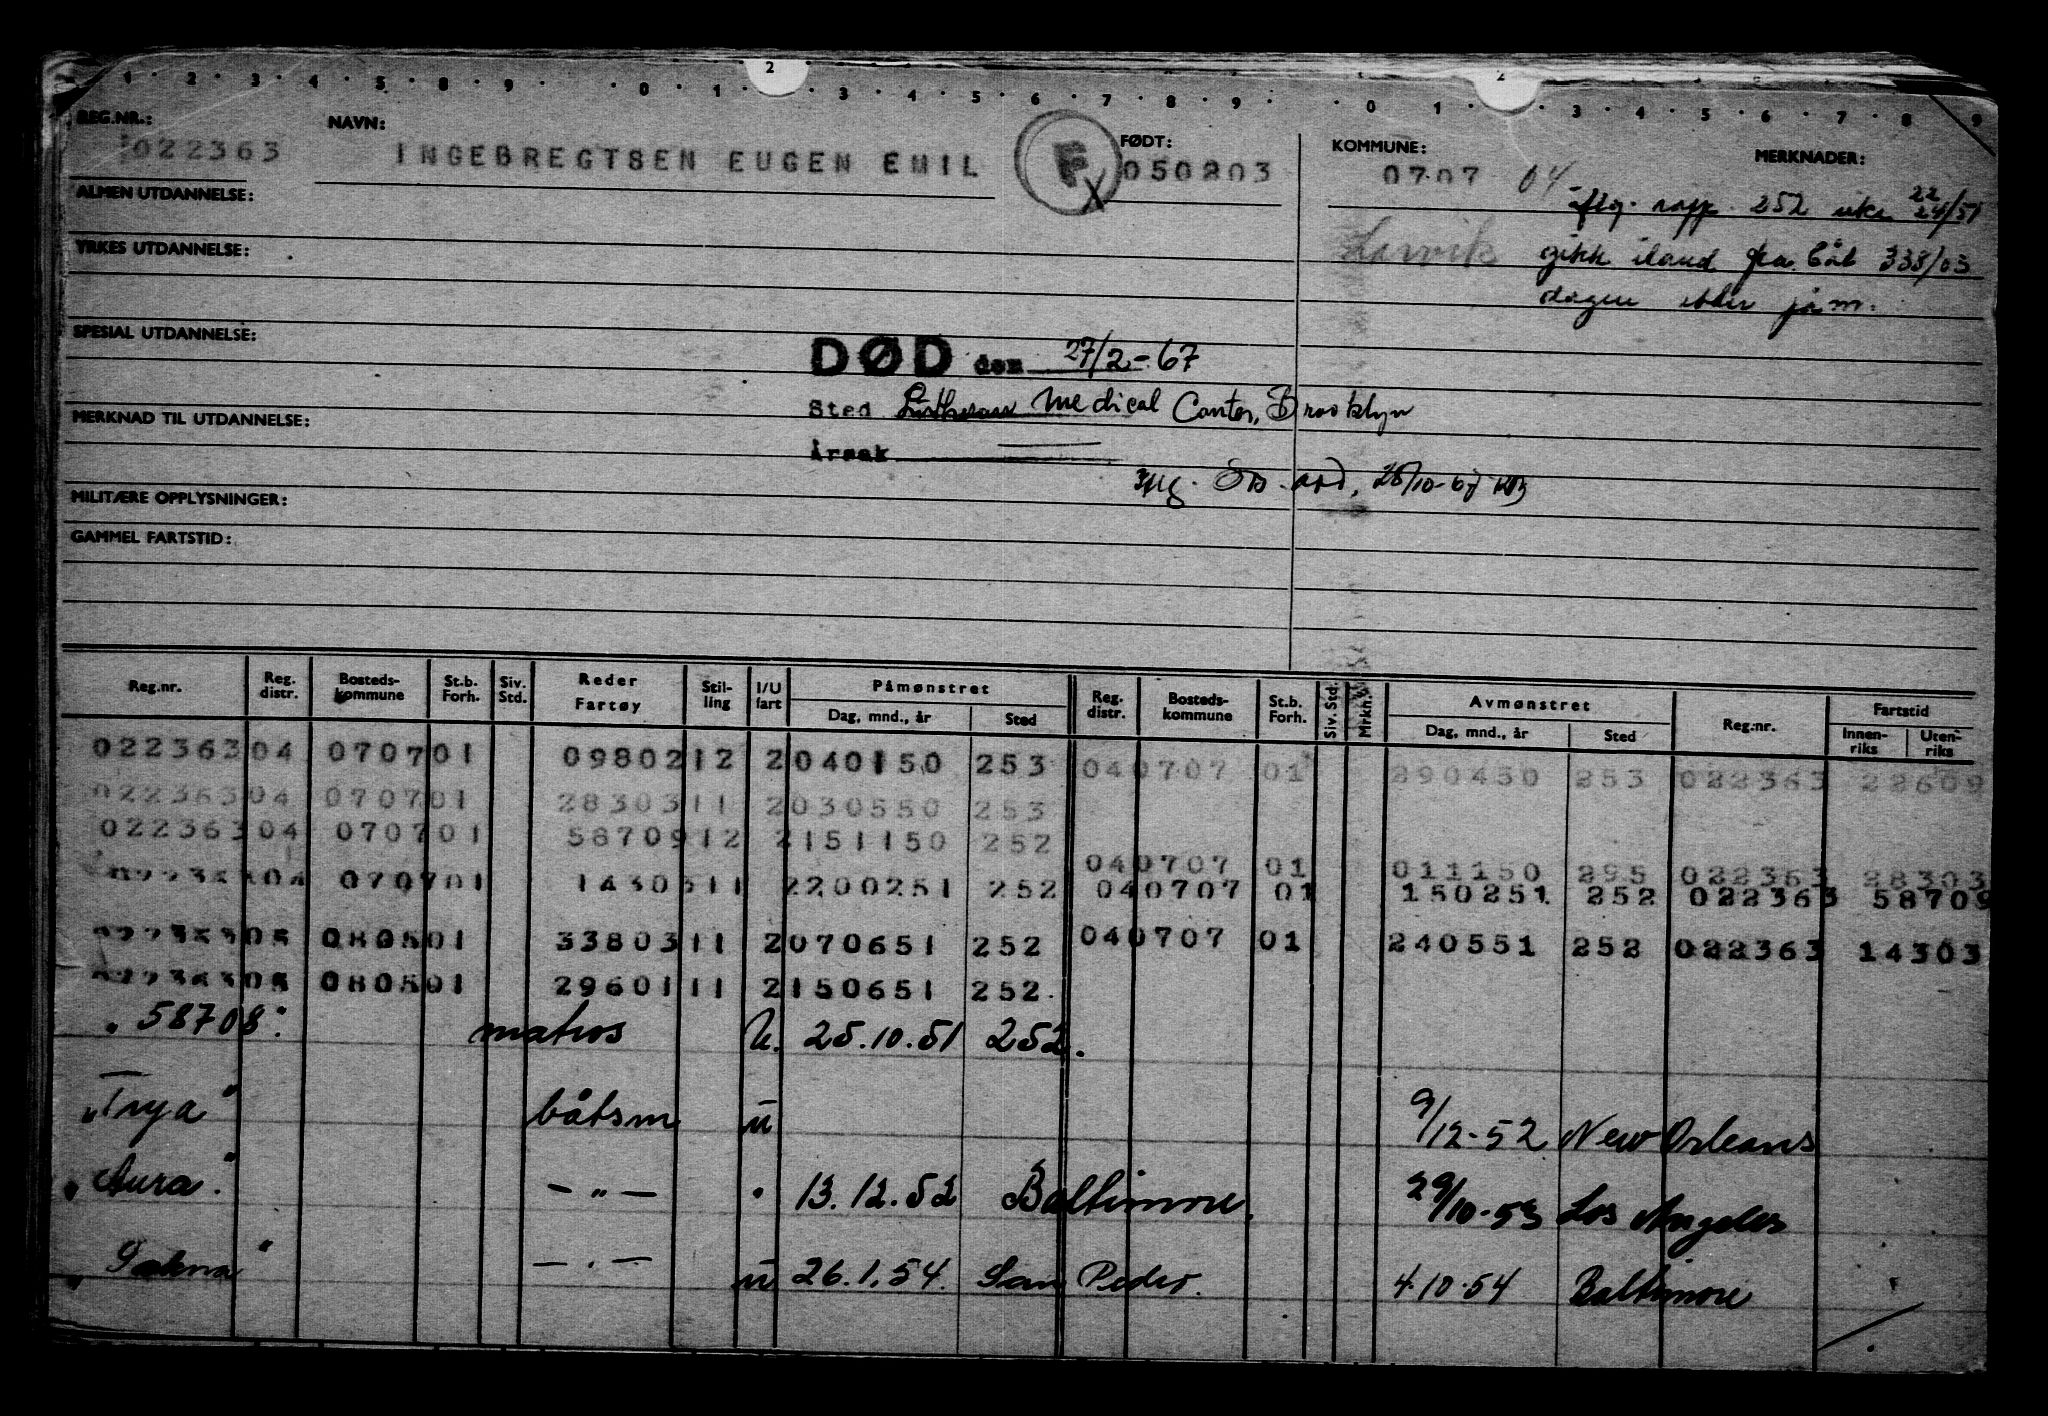 1 · 2 · 3 · 4 · 5 · 8 · 9 · · 0 · 1 · 2 · 3 · 4 · 5 · 6 · 7 · 8 · 9 · · 0 · 1 · 2 · 3 · 4 · 5 · 6 · 7 · 8 · 9
REG.NR.: NAVN: FØDT: KOMMUNE: MERKNADER:
022363 INGEBREGTSEN EUGEN EMIL F X 050203 0707 04
rapp. 252 22/24/51
ALMEN UTDANNELSE:
Larvik gikk iland fra båt 338/03
YRKES UTDANNELSE:
dagen etter påm.
SPESIAL UTDANNELSE:
DØD den 27/2-67
Sted Lutheran Medical Center, Brooklyn
MERKNAD TIL UTDANNELSE:
Årsak
MILITÆRE OPPLYSNINGER:
GAMMEL FARTSTID:
Reg.nr. Reg. distr. Bosteds-kommune St.b. Forh. Siv. Std. Reder Fartøy Stil-ling I/U fart Påmønstret Dag, mnd., år Sted Reg. distr. Bosteds-kommune St.b. Forh. Siv. Std. Mrkn. Avmønstret Dag, mnd., år Sted Reg.nr. Fartstid Innen-riks Uten-riks
022363 04 0707 01 09802 12 2 040150 253 04 0707 01 290450 253 022363 22609
022363 04 0707 01 28303 11 2 030550 253
022363 04 0707 01 58709 12 2 151150 252
04 0707 01 011150 295 022363 28303
022363 04 0707 01 14303 11 2 200251 252 04 0707 01 150251 252 022363 58709
022363 05 0805 01 33803 11 2 070651 252 04 0707 01 240551 252 022363 14303
022363 05 0805 01 29601 11 2 150651 252
" 58708 " matros U. 25.10.51 252.
" Trya " båtsm u 9/12-52 New Orleans
" Aura " — " — " 13.12.52 Baltimore. 29/10-53 Los Angeles
— " — u 26.1.54. San Pedro. 4.10.54 Baltimore